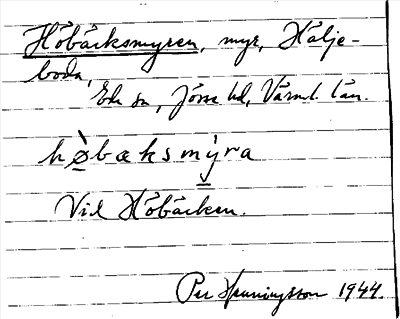 Höbäcksmyren, myr, Hälje-
boda,
Eda sn, Jösse hd, Värml. län.
hø̀bæksmỳra
Vid Höbäcken.
Per Henningsson 1944.